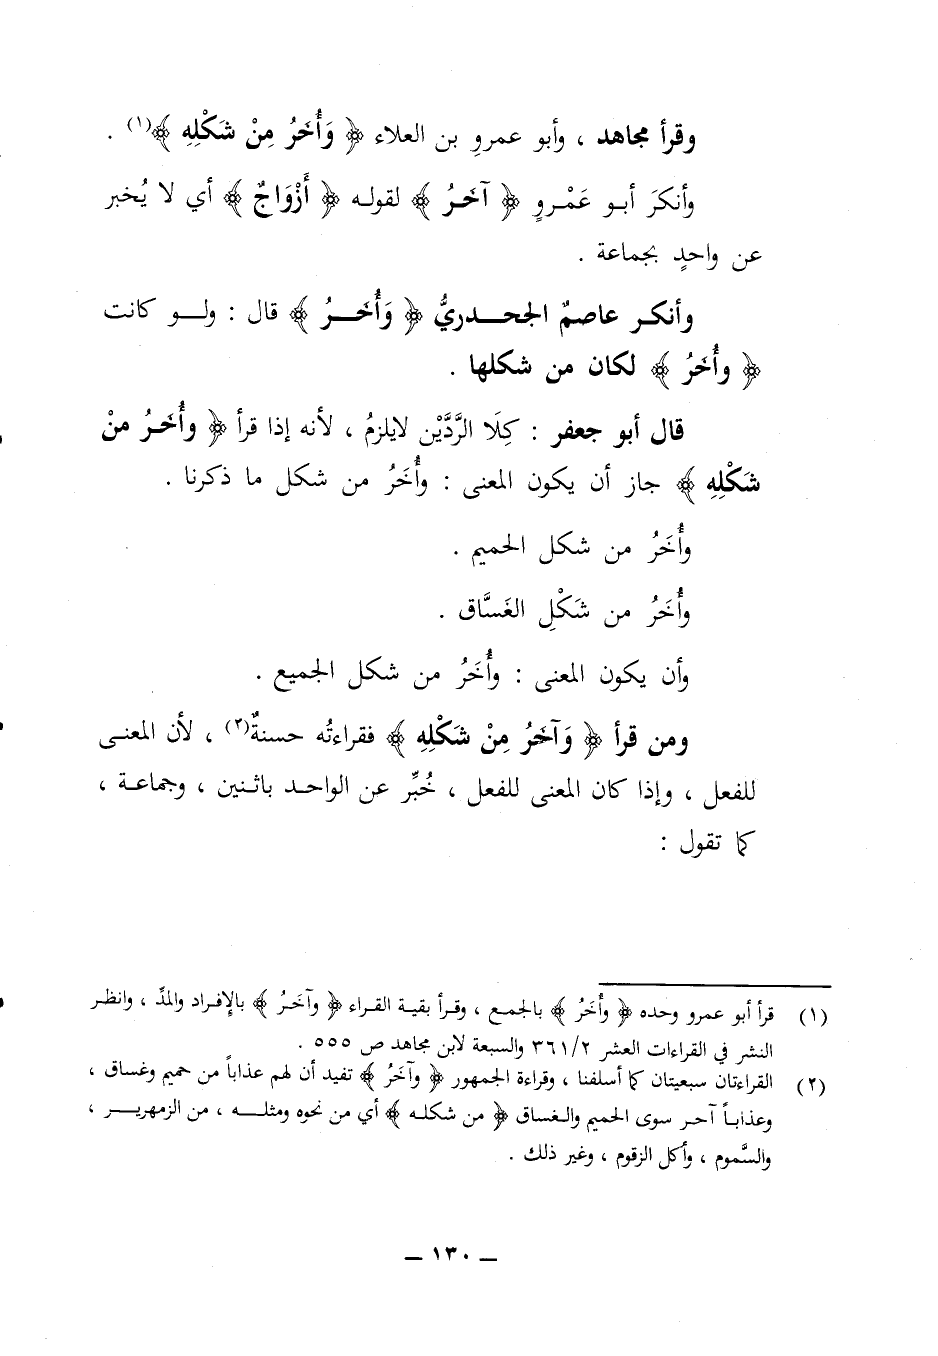 وقرأ مجاهد ، وأبو عمروِ بن العلاء ﴿ وَأُخَرُ مِنْ شَكْلِهِ ﴾(١) .
وأنكرَ أبـو عَمْـروٍ ﴿ آخَـرُ ﴾ لقولـه ﴿ أَزْوَاجٌ ﴾ أي لا يُخبر
عن واحدٍ بجماعة .
وأنكـر عاصمٌ الجحـدريُّ ﴿ وَأُخَـرُ ﴾ قال : ولـو كانت
﴿ وأُخَرُ ﴾ لكان من شكلها .
قال أبو جعفر : كِلَا الرَّدَّيْن لايلزمُ ، لأنه إذا قرأ ﴿ وأُخَـرُ منْ
شَكْلِهِ ﴾ جاز أن يكون المعنى : وأُخَرُ من شكل ما ذكرنا .
وأُخَرُ من شكل الحميم .
وأُخَرُ من شَكْلِ الغَسَّاق .
وأن يكون المعنى : وأُخَرُ من شكل الجميع .
ومن قرأ ﴿ وَآخَرُ مِنْ شَكْلِهِ ﴾ فقراءتُه حسنةٌ(٢) ، لأن المعنـى
للفعل ، وإذا كان المعنى للفعل ، خُبِّر عن الواحـد باثـنين ، وجماعـة ،
كما تقول :
(١) قرأ أبو عمرو وحده ﴿ وأُخَرُ ﴾ بالجمـع ، وقـرأ بقيـة القـراء ﴿ وآخَـرُ ﴾ بالإفـراد والمدِّ ، وانظـر
النشر في القراءات العشر ٣٦١/٢ والسبعة لابن مجاهد ص ٥٥٥ .
(٢) القراءتان سبعيتان كما أسلفنا ، وقراءة الجمهور ﴿ وآخَرُ ﴾ تفيد أن لهم عذاباً من حميم وغساق ،
وعذابـاً آخـر سوى الحميم والـغساق ﴿ من شكلـه ﴾ أي من نحوه ومثلـه ، من الزمهريـر ،
والسَّموم ، وأكل الزقوم ، وغير ذلك .
ــ ١٣٠ ــ